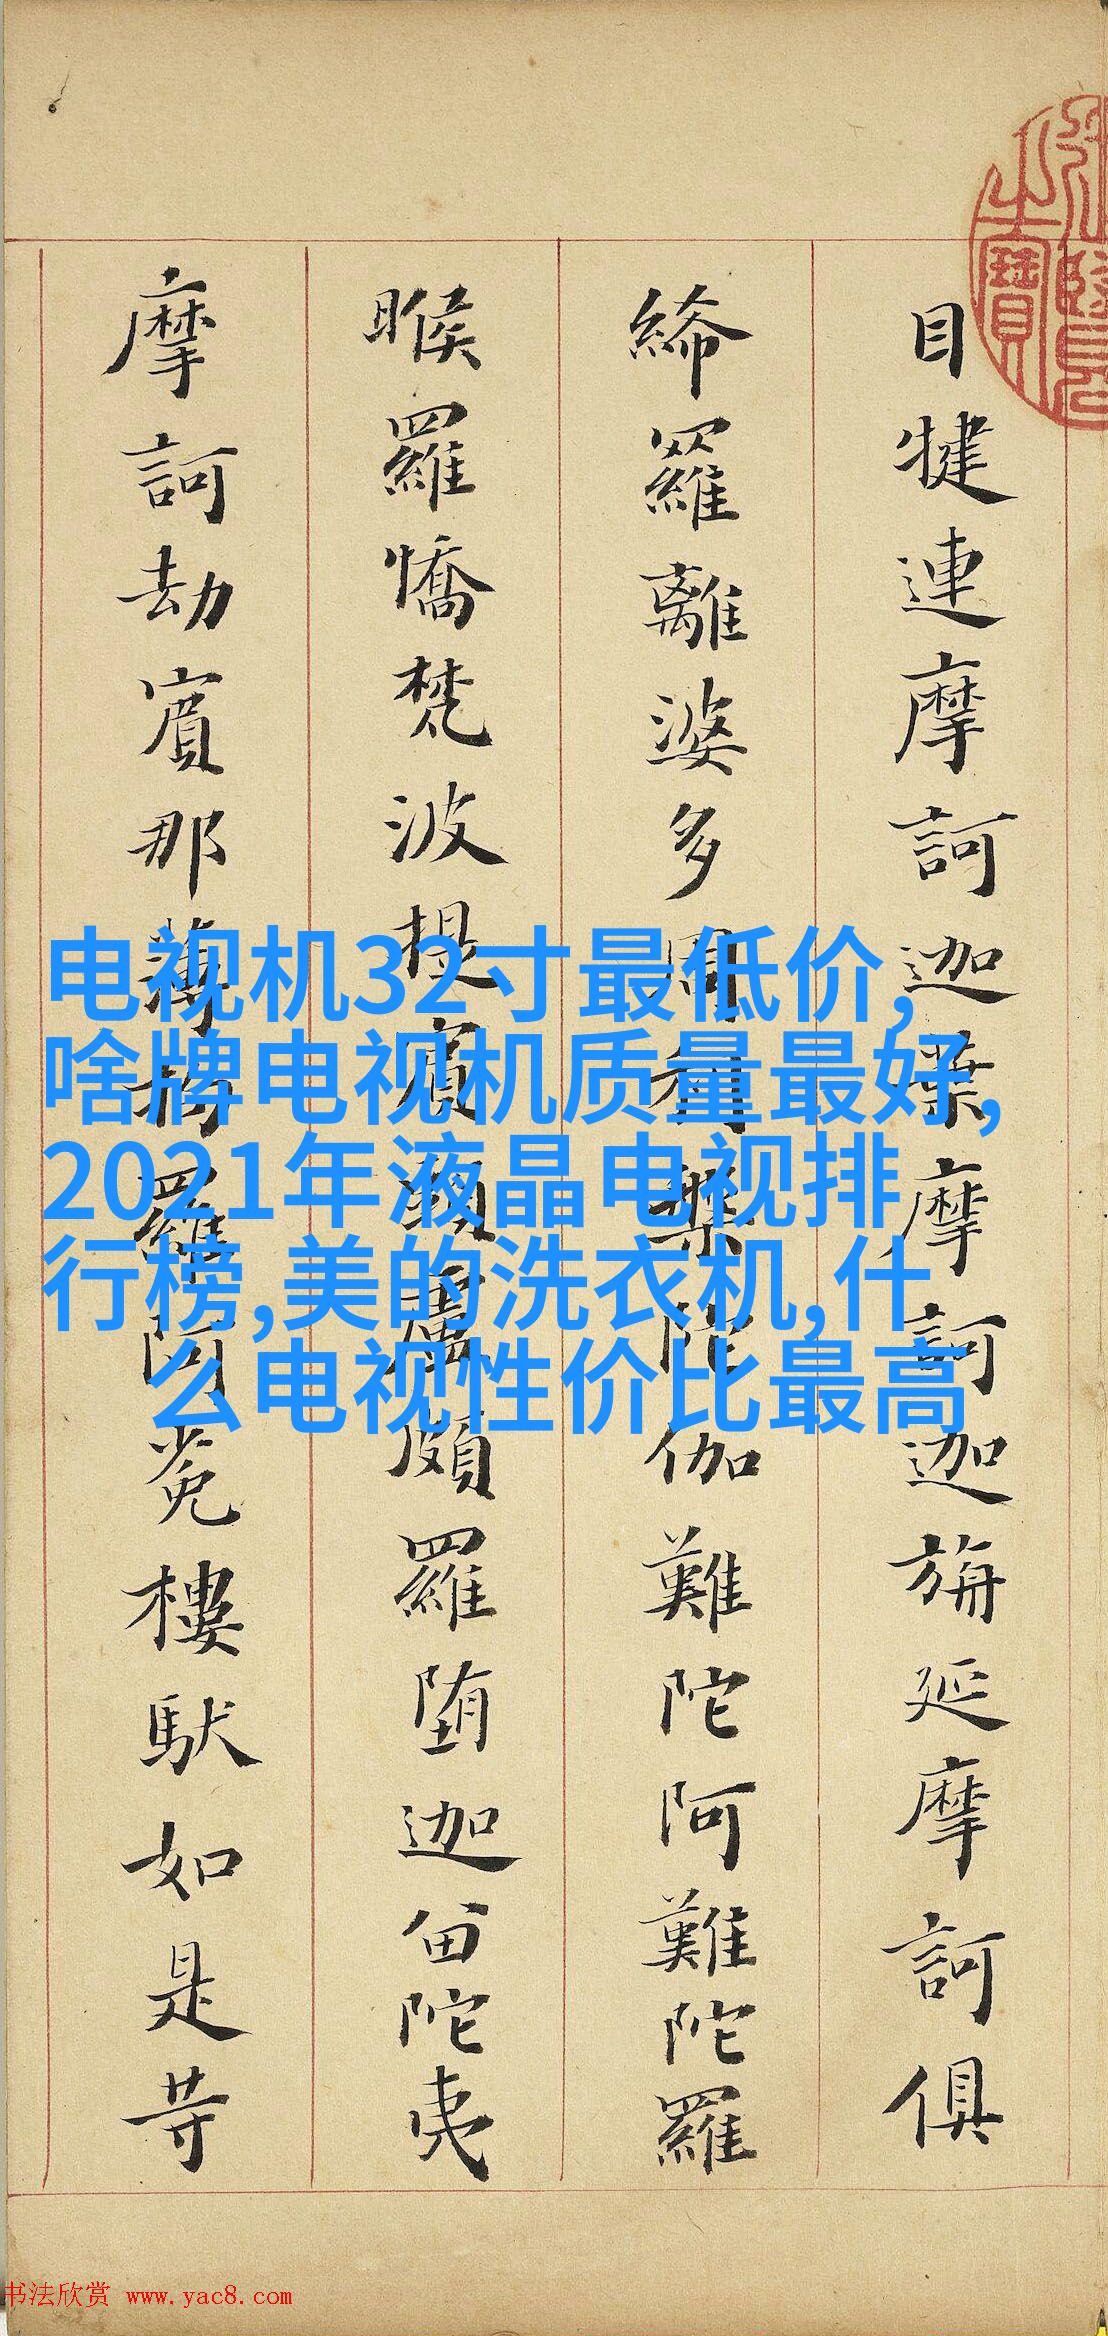 目犍連摩訶迦葉摩訶迦旃延摩訶俱
絺羅離婆多周利槃陀伽難陀阿難陀羅
睺羅憍梵波提賓頭盧頗羅堕迦留陀夷
摩訶劫賓那薄拘羅阿㝹樓馱如是等
电视机32寸最低价,
啥牌电视机质量最好,
2021年液晶电视排
行榜,美的洗衣机,什
么电视性价比最高
书法欣赏 www.yac8.com